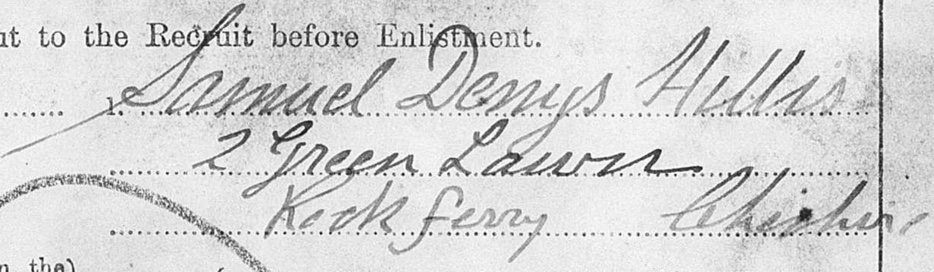 ut to the Recruit before Enlistment.
1. Samuel Denys Hillis
2 Green Lawn
Rock ferry Cheshire
n the)